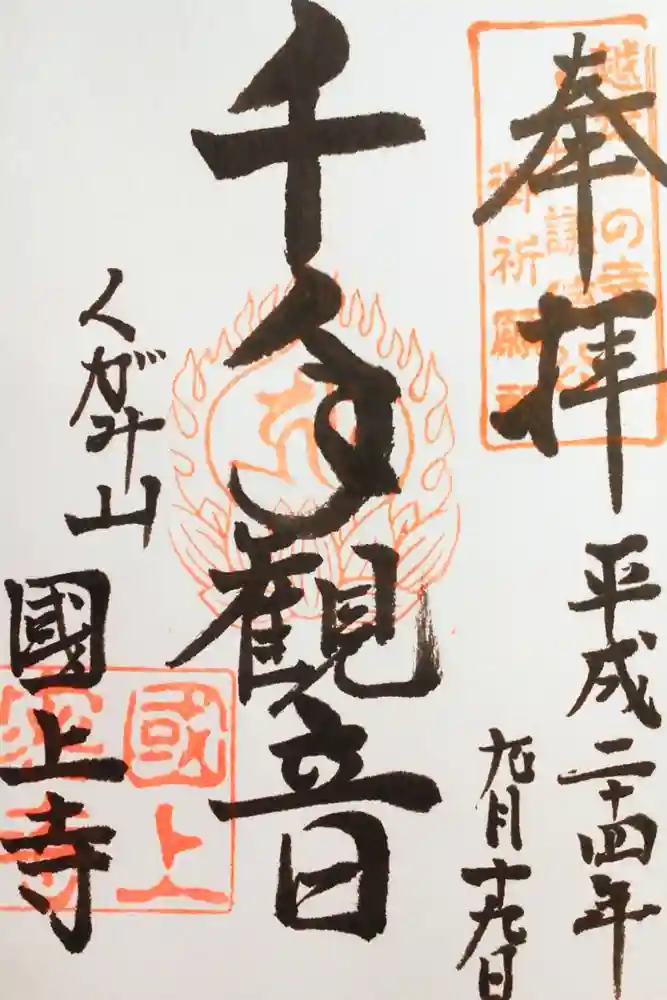 奉拝
平成二十四年
九月十九日
千手観音
くがみ山
國上寺
御祈願
國上
寺